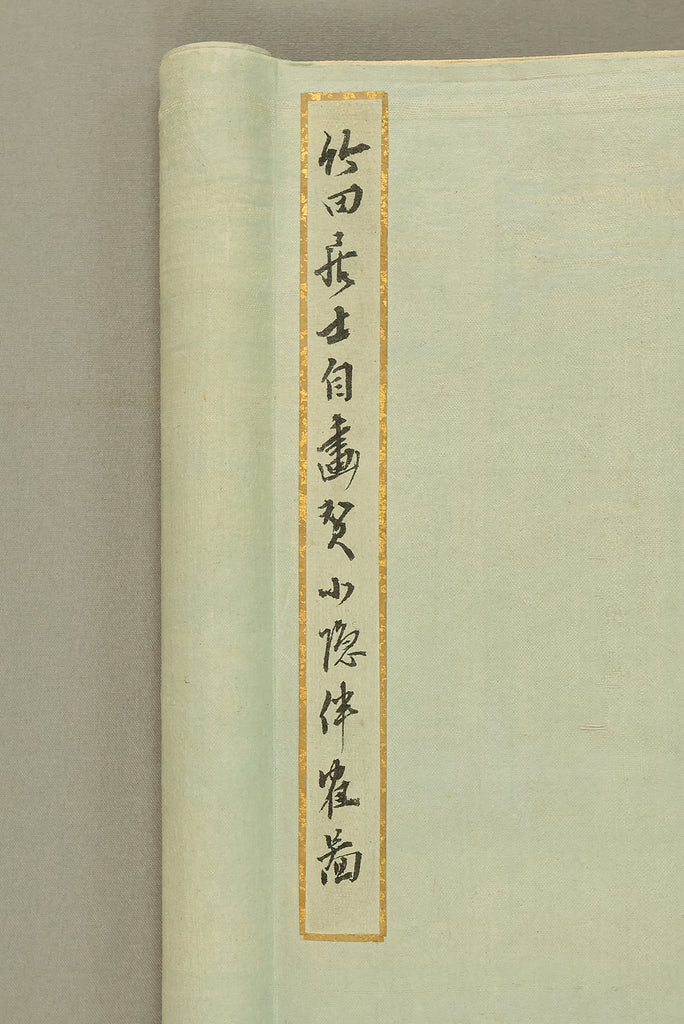 竹田居士自畫賛小隠伴隺圖